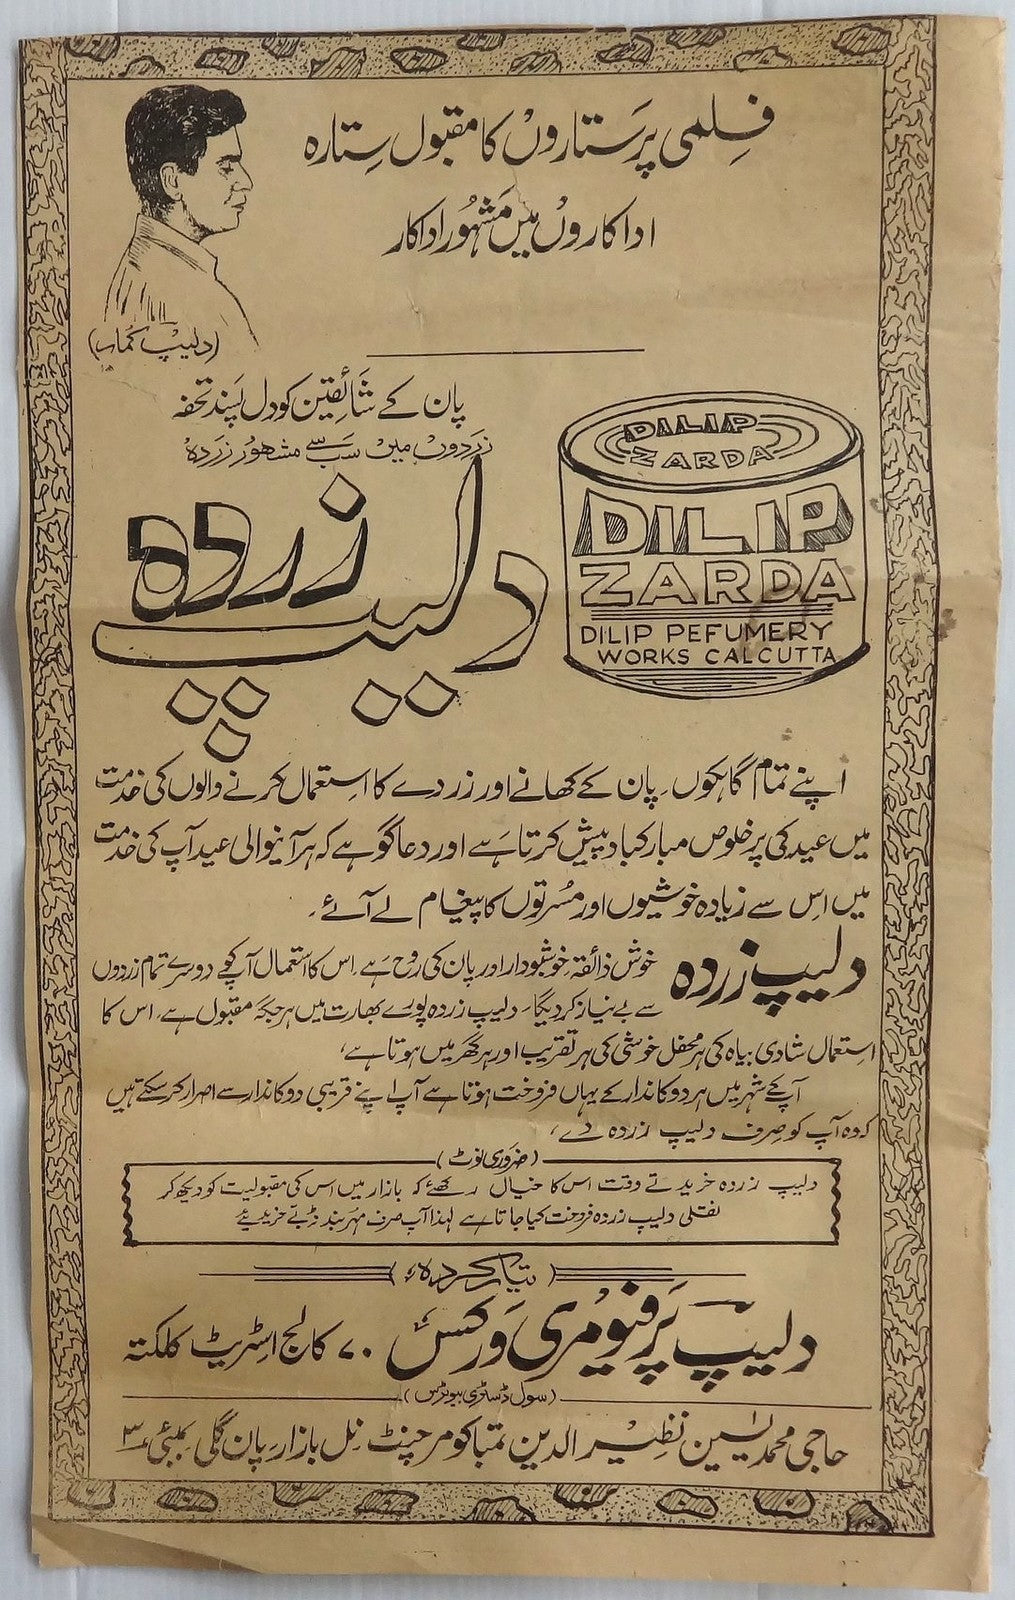 فلمی پرستاروں کا مقبول ستارہ
اداکاروں میں مشہور اداکار
(دلیپ کمار)
پان کے شائقین کو دل پسند تحفہ
زردوں میں سب سے مشہور زردہ
دلیپ زردہ
DILIP
ZARDA
DILIP
ZARDA
DILIP PEFUMERY
WORKS CALCUTTA
اپنے تمام گاہکوں، پان کے کھانے اور زردے کا استعمال کرنے والوں کی خدمت
میں عید کی پرخلوص مبارکباد پیش کرتا ہے اور دعا گو ہے کہ ہر آنیوالی عید آپ کی خدمت
میں اس سے زیادہ خوشیوں اور مسرتوں کا پیغام لے آئے۔
دلیپ زردہ خوش ذائقہ، خوشبودار اور پان کی روح ہے۔ اس کا استعمال آپکو دوسرے تمام زردوں
سے بے نیاز کر دیگا۔ دلیپ زردہ پورے بھارت میں ہر جگہ مقبول ہے۔ اس کا
استعمال شادی بیاہ کی ہر محفل خوشی کی ہر تقریب اور ہر گھر میں ہوتا ہے،
آپکے شہر میں ہر دوکاندار کے یہاں فروخت ہوتا ہے آپ اپنے قریبی دوکاندار سے اصرار کر سکتے ہیں
کہ وہ آپ کو صرف دلیپ زردہ دے،
(ضروری نوٹ)
دلیپ زردہ خریدتے وقت اس کا خیال رکھئے کہ بازار میں اس کی مقبولیت کو دیکھ کر
نقلی دلیپ زردہ فروخت کیا جاتا ہے لہذا آپ صرف مہر بند ڈبے خریدیئے
(تیار کردہ)
دلیپ پرفیومری ورکس ۷۰ کالج اسٹریٹ کلکتہ
(سول ڈسٹری بیوٹرس)
حاجی محمد یٰسین نظیر الدین تمباکو مرچنٹ۔ نل بازار، پان گلی بمبئی ۳